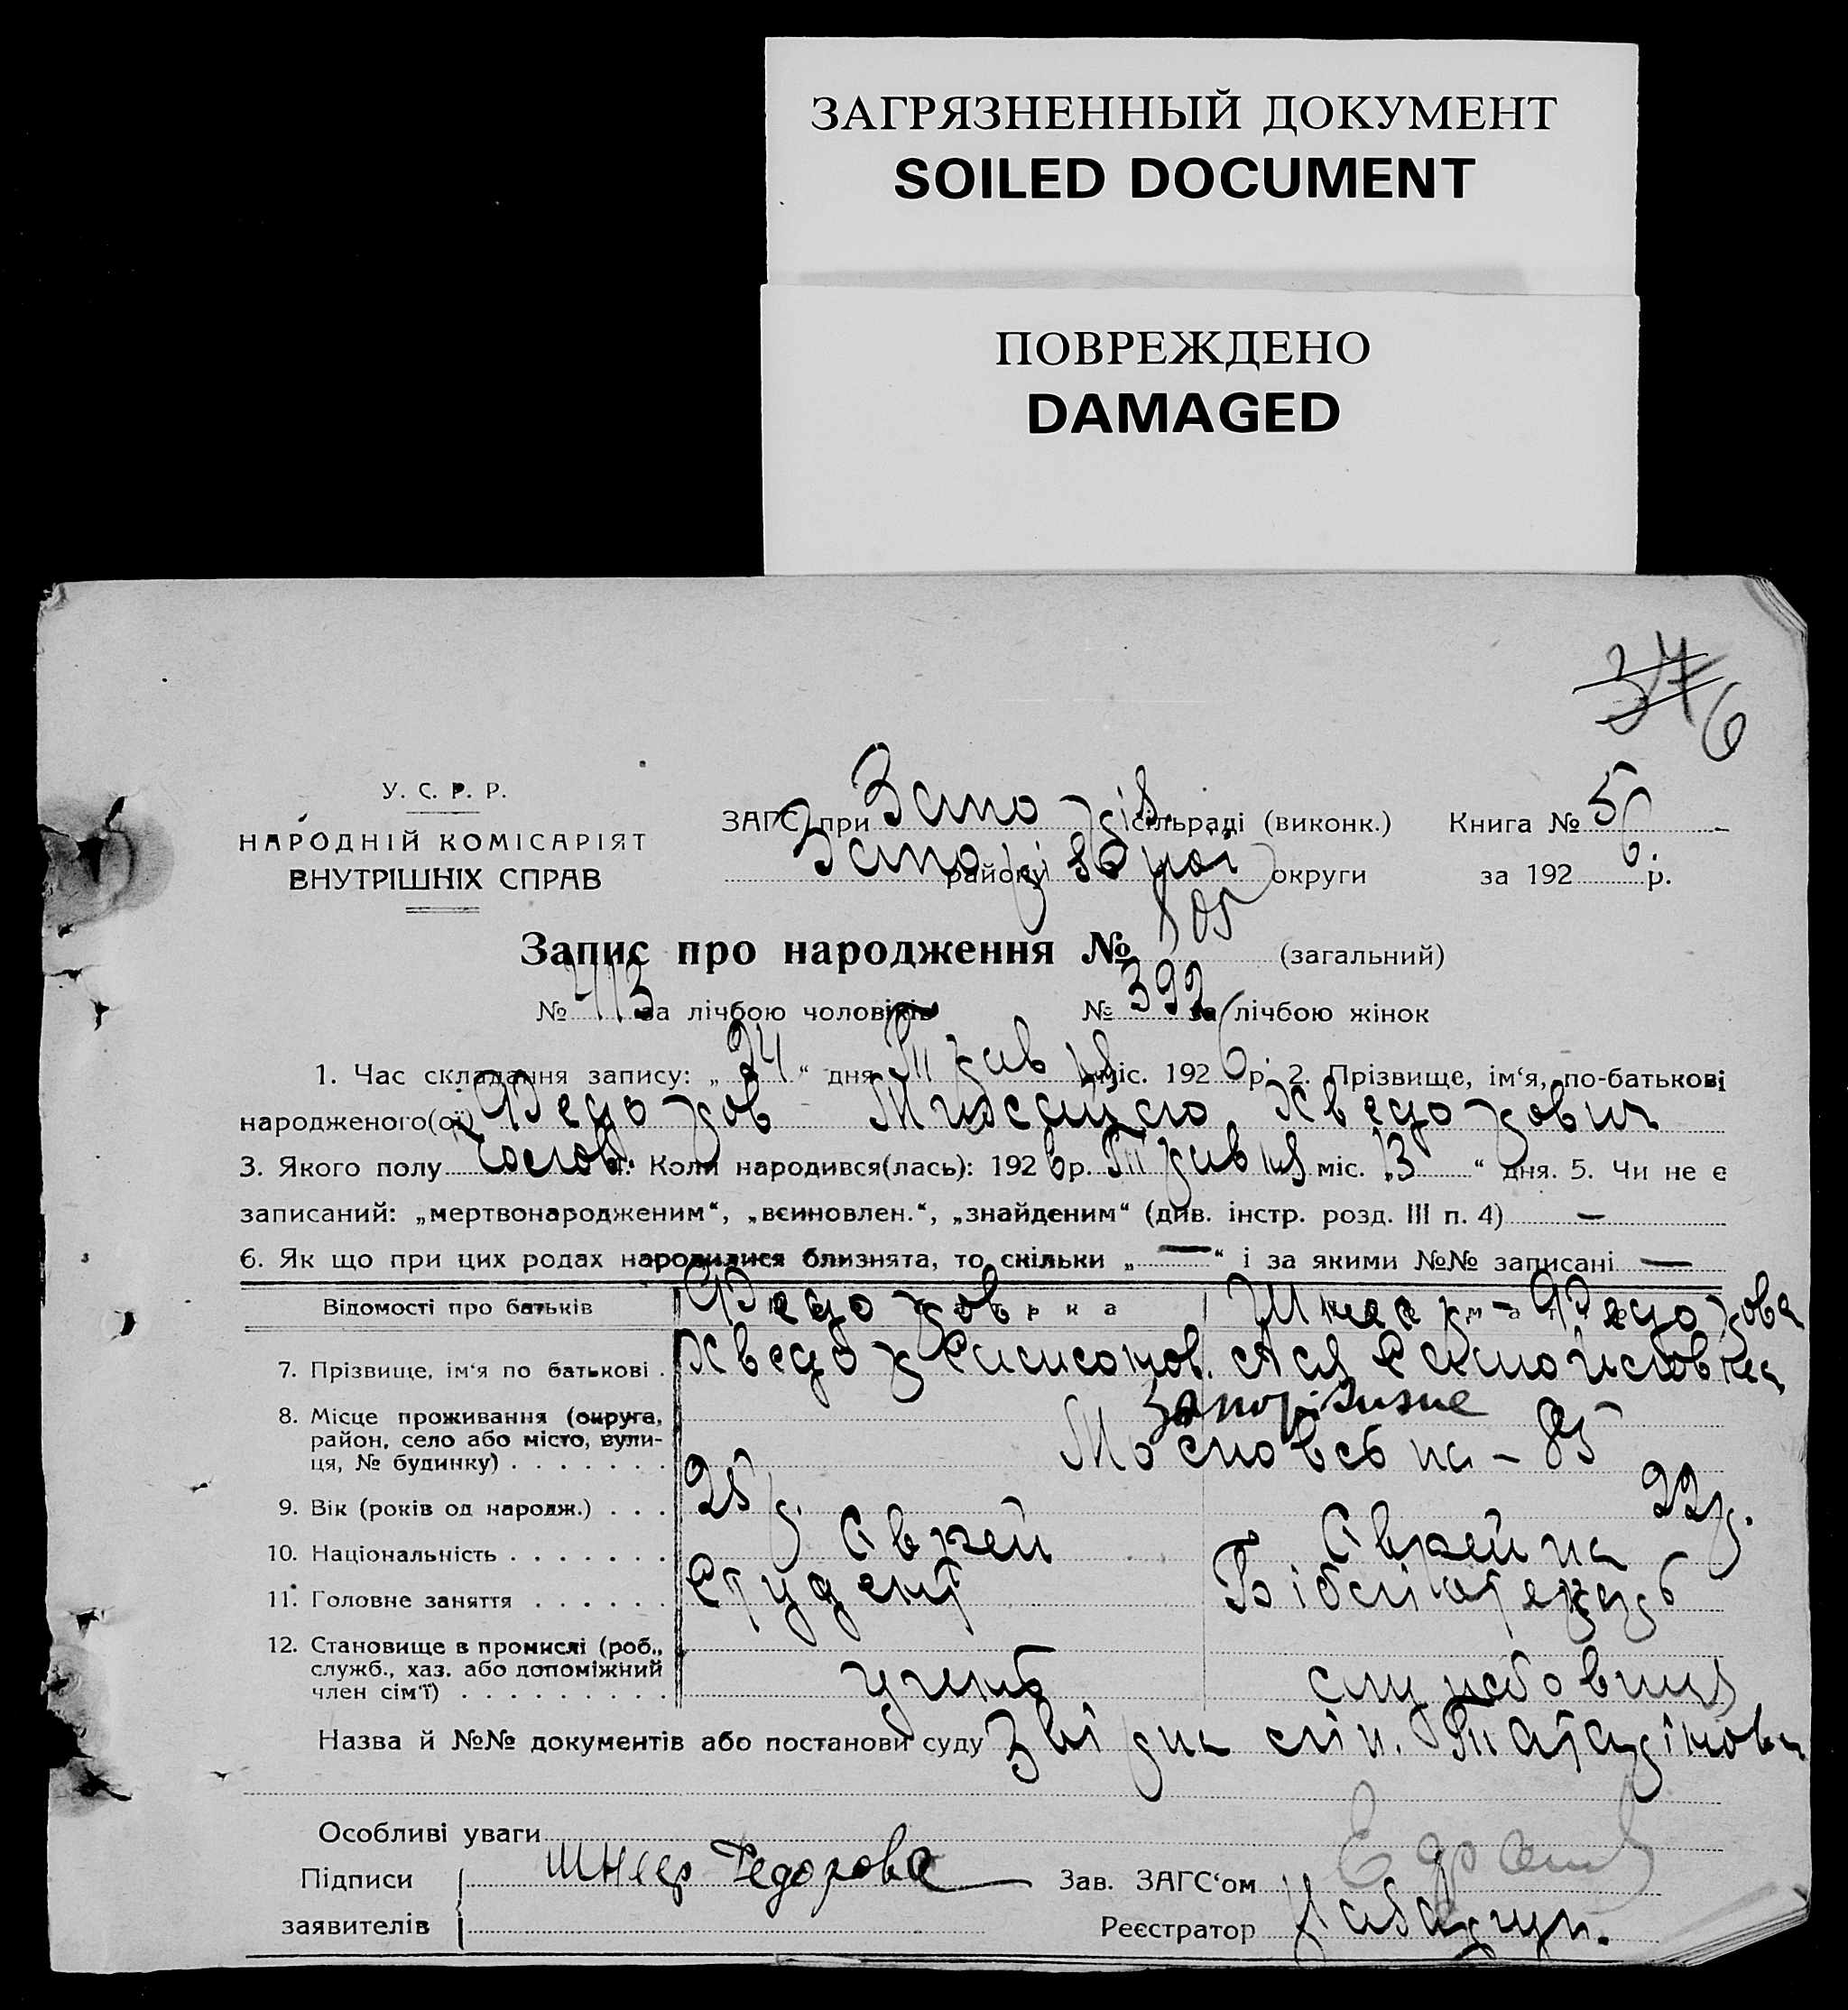 ЗАГРЯЗНЕННЫЙ ДОКУМЕНТ
SOILED DOCUMENT
ПОВРЕЖДЕНО
DAMAGED
37 6
У. С. Р. Р.
НАРОДНІЙ КОМІСАРІЯТ
ВНУТРІШНІХ СПРАВ
ЗАГС при Запоріз. сільраді (виконк.) Книга № 5
району Запорізької округи за 1926 р.
Запис про народження № 805 (загальний)
№ 413 за лічбою чоловіків № 392 за лічбою жінок
1. Час складання запису: „24“ дня Травня міс. 1926 р. 2. Прізвище, ім‘я, по-батькові
народженого(ої) Федоров Хведорович
3. Якого полу чолов. 4. Коли народився(лась): 1926 р. Травня міс. „13“ дня. 5. Чи не є
записаний: „мертвонародженим“, „всиновлен.“, „знайденим“ (див. інстр. розд. III п. 4) —
6. Як що при цих родах народилися близнята, то скільки „—“ і за якими №№ записані —
Відомості про батьків
Федоров Шнеер-Федорова
7. Прізвище, ім‘я по батькові . Хведор Ася Самойловна
8. Місце проживання (округа, район, село або місто, вулиця, № будинку) . . . . . . . Запоріжжє
Московська - 85
9. Вік (років од народж.) . . . 25 р. 22 р.
10. Національність . . . . . . . Єврей Єврейка
11. Головне заняття . . . . . . Студент Бібліотекарь
12. Становище в промислі (роб., служб., хаз. або допоміжний член сім‘ї) . . . . . . . . . учень службовиця
Назва й №№ документів або постанови суду
Особливі уваги
Підписи Шнеер Федорова Зав. ЗАГС‘ом
заявителів Реєстратор